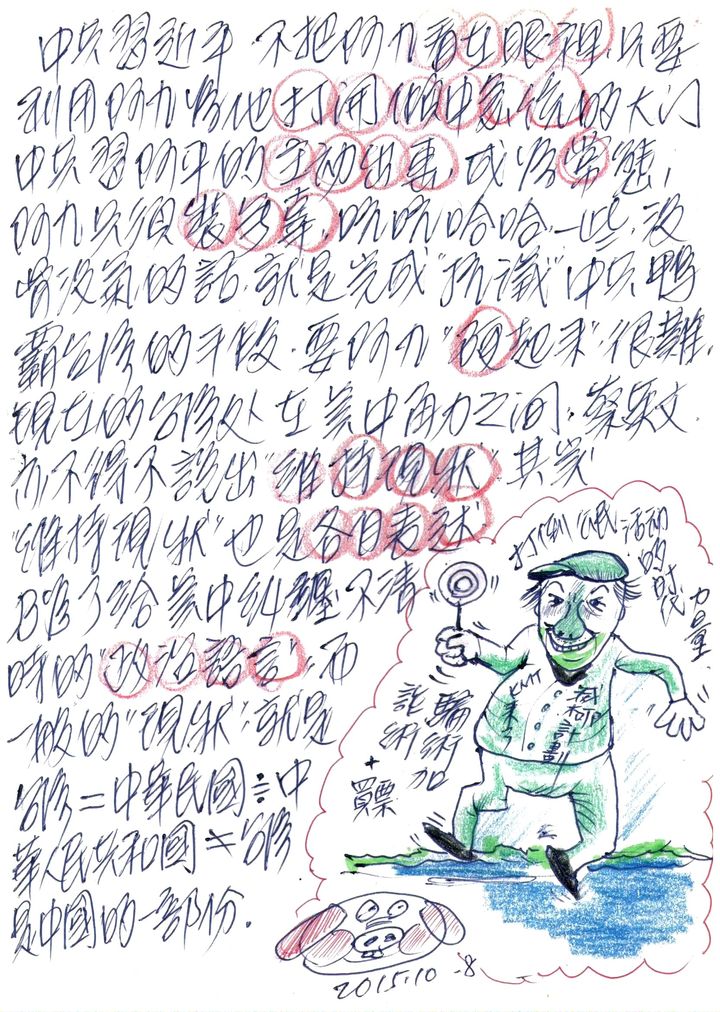 中共習近平 不把阿九看在眼裡,只要
利用阿九為他打開傾中賣台的大门
中共習阿平的主动出事 成為常態,
阿九只須裝孬, 吭吭哈哈,一些,沒
骨沒氣的話,就是完成"抗議"中共鴨
霸台湾的手段.要阿九"硬起来"很難.
現在的台湾处在美中角力之间,蔡英文
亦不得不說出"維持現狀"其实
"維持現狀"也是各自表述
只為了給美中糾纏不清
時的"政治語言",而
一般的"現狀"就是
台湾=中華民國≑中
華人民共和國≠台湾
是中國的一部份.
打倒 民活动
的时代
力量
詐術
騙術加
+
買票
KMT
計劃
2015.10-8